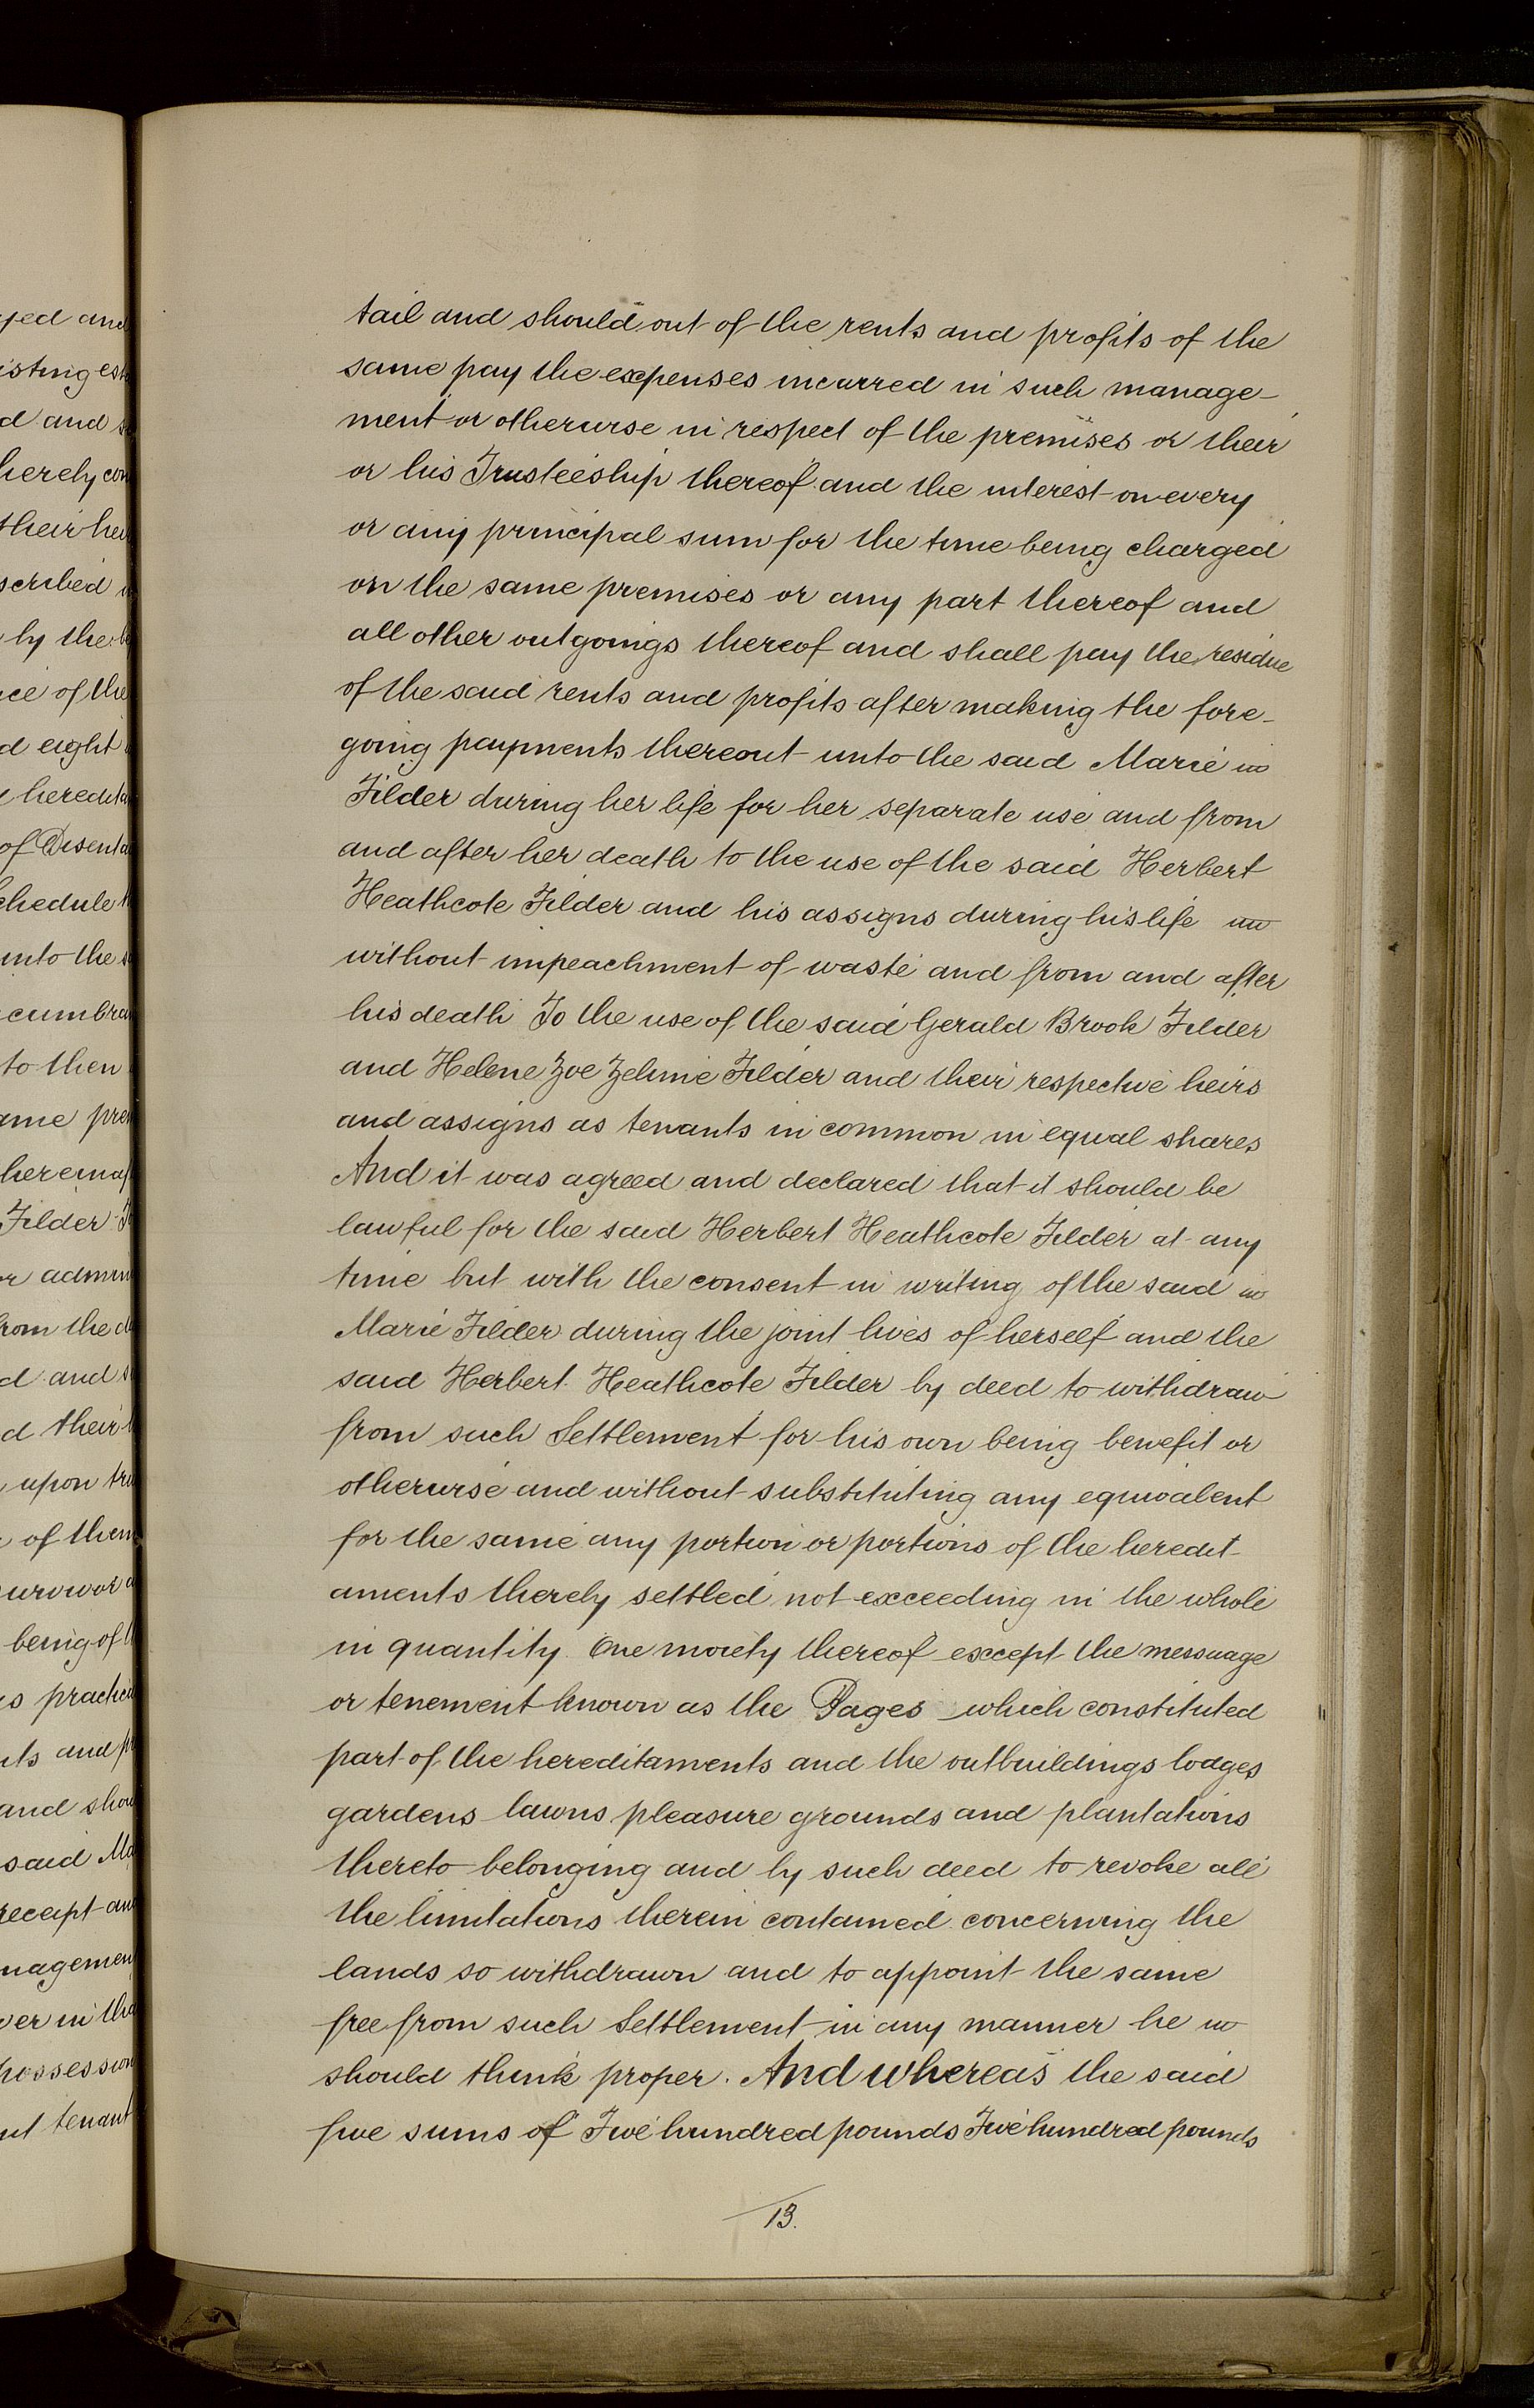 tail and should out of the rents and profits of the
same pay the expenses incurred in such manage-
ment or otherwise in respect of the premises or their
or his Trusteeship thereof and the interest on every
or any principal sum for the time being charged
on the same premises or any part thereof and
all other outgoings thereof and shall pay the residue
of the said rents and profits after making the fore-
going payments thereout unto the said Marie
Filder during her life for her separate use and from
and after her death to the use of the said Herbert
Heathcote Filder and his assigns during his life
without impeachment of waste and from and after
his death To the use of the said Gerald Brook Filder
and Helene Zoe Zelmie Filder and their respective heirs
and assigns as tenants in common in equal shares
And it was agreed and declared that it should be
lawful for the said Herbert Heathcote Filder at any
time but with the consent in writing of the said
Marie Filder during the joint lives of herself and the
said Herbert Heathcote Filder by deed to withdraw
from such Settlement for his own being benefit or
otherwise and without substituting any equivalent
for the same any portion or portions of the heredit-
aments thereby settled not exceeding in the whole
in quantity One moiety thereof except the messuage
or tenement known as the Pages which constituted
part of the hereditaments and the outbuildings lodges
gardens lawns pleasure grounds and plantations
thereto belonging and by such deed to revoke all
the limitations therein contained concerning the
lands so withdrawn and to appoint the same
free from such Settlement in any manner he
should think proper. And whereas the said
five sums of Five hundred pounds Five hundred pounds
13.